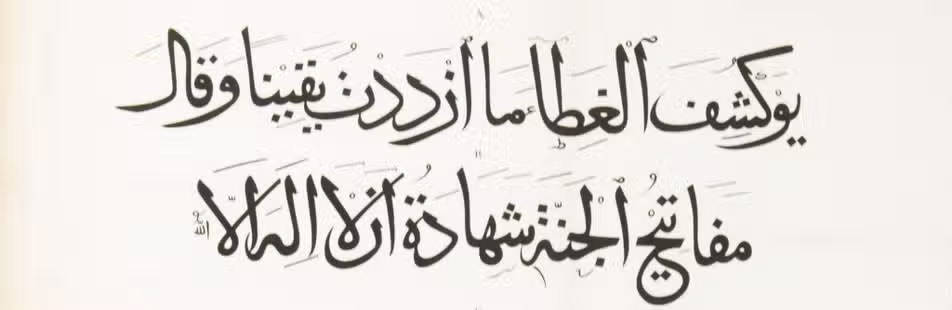 يوكُشِفَ ٱلْغِطَاءُ مَا ٱزْدَدْتُ يَقِيْنًا وَقَالَ
مَفَاتِيْحُ ٱلْجَنَّةِ شَهَادَةُ اَنْ لَا اِلٰهَ اِلَّا اللّٰهُ